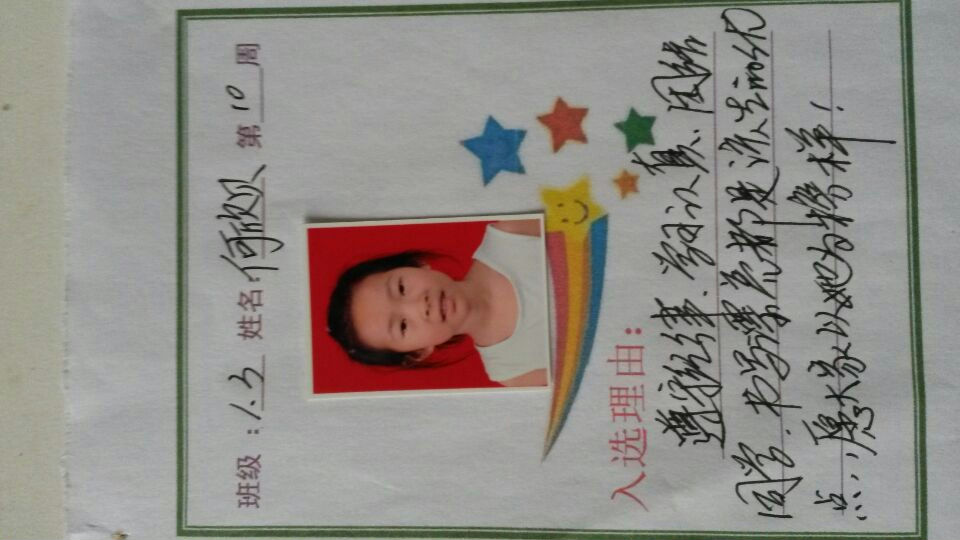 班级：1.3 姓名：何欣贝 第10周
入选理由：
遵守纪律、学习认真、团结
同学、书写漂亮都是该生的优
点，愿大家以她为榜样！